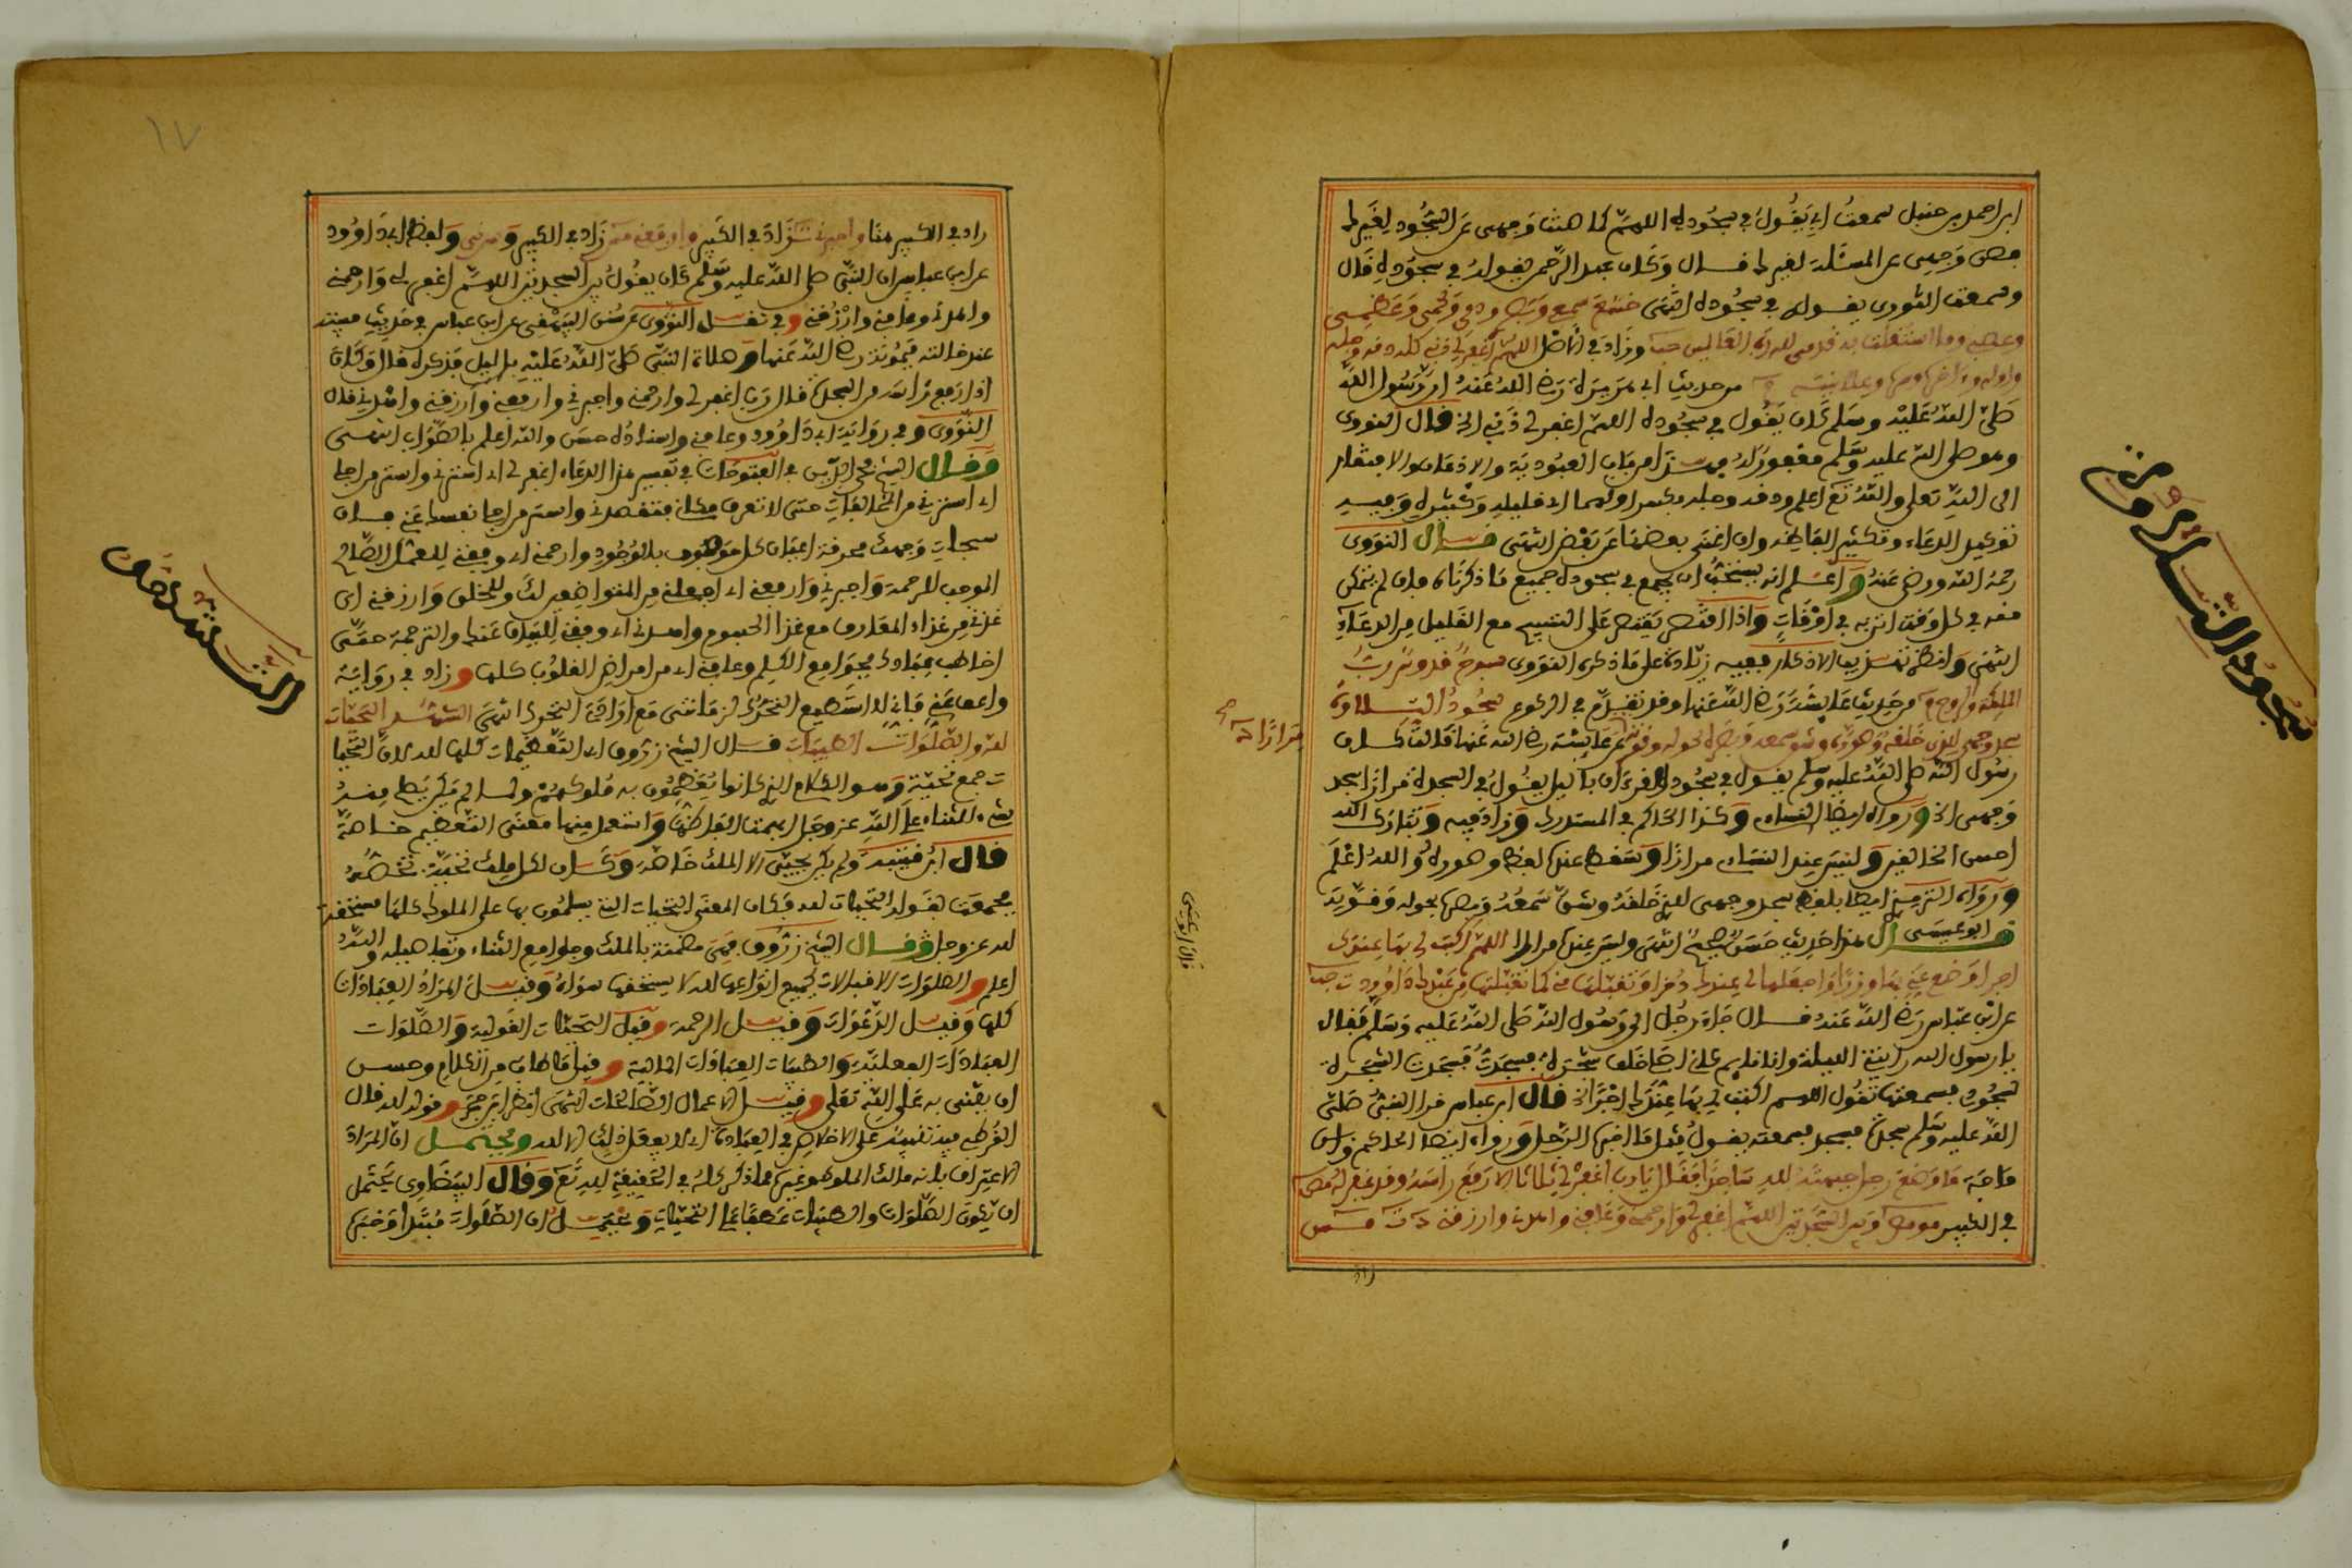 ابن احمد بن حنبل سمعت ابي يقول في سجوده اللهم كما صنت وجهي عن السجود لغيرك
فصن وجهي عن المسئلة لغيرك قال وكان عبد الرحمن يقوله في سجوده قال
وسمعت الثوري يقوله في سجوده انتهى خشع سمعي وبصري ودمي ولحمي وعظمي
وعصبي وما استقلت به قدمي لله رب العالمين حب وزاد في اللهم اغفر لي ذنبي كله دقه وجله
واوله وءاخره وعلانيته من حديث ابي هريرة رضي الله عنه ان رسول الله
صلى الله عليه وسلم كان يقول في سجوده اللهم اغفر لي ذنبي الخ قال النووي
وهو صلى الله عليه وسلم مغفور له من باب العبودية والاذعان والافتقار
الى الله تعلى والله تع اعلم ودقه وجله بكسر اولهما اي قليله وكثيره وفيه
توكيد الدعاء وتكثير الفاظه وان اغنى بعضها عن بعض انتهى قال النووي
رحمه الله ورضي عنه واعلم انه يستحب ان يجمع في سجوده جميع ما ذكرناه فان لم يتمكن
منه في كل وقت اتى به في اوقات واذا اقتصر يقتصر على التسبيح مع القليل من الدعاء
انتهى وانظر الاذكار ففيه زيادة على ما ذكره النووي سبوح قدوس رب
الملئكة والروح م من حديث عايشة رضي الله عنها وقد تقدم في الركوع سجود التلاوة
سجد وجهي للذي خلقه وصوره وشق سمعه وبصره بحوله وقوته عن عايشة رضي الله عنها قالت كان
رسول الله صلى الله عليه وسلم يقول في سجود القرءان بالليل يقول في السجدة مرارا سجد
وجهي الخ ورواه ايضا النساءي وكذا الحاكم في المستدرك وزاد فيه وتبارك الله
احسن الخالقين وليس عند النساءي مرارا وسقط عنده لفظ وصوره والله اعلم
ورواه الترمذي ايضا بلفظ سجد وجهي للذي خلقه وشق سمعه وبصره بحوله وقوته
قال ابو عيسى هذا حديث حسن صحيح انتهى وليس عنده مرارا اللهم اكتب لي بها عندك
اجرا وضع عني بها وزرا واجعلها لي عندك ذخرا وتقبلها مني كما تقبلتها من عبدك داوود ت حب
عن ابن عباس رضي الله عنه قال جاء رجل الى رسول الله صلى الله عليه وسلم فقال
يا رسول الله رايتني الليلة وانا نايم كاني اصلي خلف شجرة فسجدت فسجدت الشجرة
لسجودي فسمعتها تقول اللهم اكتب لي بها عندك اجرا الخ قال ابن عباس فرا النبي صلى
الله عليه وسلم سجدة فسجد فسمعته يقول مثل ما اخبره الرجل ورواه ايضا الحاكم وابن
ماجه ما وضع رجل جبهته لله ساجدا فقال يا رب اغفر لي ثلاثا الا رفع راسه وقد غفر له مص
في الكبير وبين السجدتين اللهم اغفر لي وارحمني وعافني واهدني وارزقني د ت
سجود التلاوة
مرارا د
قال ابو عيسى
١٧
زاد في الكبير واجبرني زاد في الكبير وارفعني زاد في الكبير ولفظ ابي داوود
عن ابن عباس ان النبي صلى الله عليه وسلم كان يقول بين السجدتين اللهم اغفر لي وارحمني
واهدني وعافني وارزقني وفي نقل النووي عن سنن البيهقي عن ابن عباس في حديث مبيته
عند خالته ميمونة رضي الله عنها وصلاة النبي صلى الله عليه بالليل فذكره قال وكان
اذا رفع راسه من السجدة قال رب اغفر لي وارحمني واجبرني وارفعني وارزقني واهدني قال
النووي وفي رواية ابي داوود وعافني واسناده حسن والله اعلم بالصواب انتهى
وقال الشيخ محي الدين في الفتوحات في تفسير هذا الدعاء اغفر لي اي استرني واستر من اجلي
اي استرني من المخالفات حتى لا تعرف مكاني فتقصدني واستر من اجلي نفسك عني فان
سبحات وجهك محرقة اعيان كل موصوف بالوجود وارحمني اي وفقني للعمل الصالح
الموجب للرحمة واجبرني وارفعني اي اجعلني من المتواضعين لك وللخلق وارزقني اي
غذني من غذاء المعارف مع غذا الجسوم واهدني اي وفقني للبيان عنك والترجمة حتى
اخاطب عبادك بجوامع الكلم وعافني اي من امراض القلوب كلها وزاد في رواية
واعف عني فاني لا استطيع التحرك لزمانتي مع ارادتي التحرك انتهى التشهد التحيات
لله والصلوات الطيبات قال الشيخ زروق اي التعظيمات كلها لله لان التحيا
ت جمع تحية وهو الكلام الذي كانوا يعظمون به ملوكهم ولما لم يكن يصلح منه
شيء للثناء على الله عز وجل ابهمت الفاظها واستعمل منها معنى التعظيم خاصة
قال ابن قتيبة ولم يكن يحيى الا الملك خاصة وكان لكل ملك تحية تخصه
فجمعت بقوله التحيات لله فكان المعنى التحيات التي يسلمون بها على الملوك كلها مستحقة
لله عز وجل وقال الشيخ زروق فهي متضمنة بالملك وجوامع الثناء وتفاصيله والله
اعلم والصلوات الاقبالات بجميع انواعها لله لا يستحقها سواه وقيل المراد العبادات
كلها وقيل الدعوات وقيل الرحمة وقيل التحيات القولية والصلوات
العبادات الفعلية والطيبات العبادات المالية وقيل ما طاب من الكلام وحسن
ان يثنى به على الله تعلى وقيل الاعمال الصالحات انتهى انظر ابن حجر وقوله لله قال
القرطبي فيه تنبيه على الاخلاص في العبادة اي لا يفعل ذلك الا لله ويحتمل ان المراد
الاعتراف بان مالك الملوك وغيرها مما ذكر كله في الحقيقة لله تع وقال البيضاوي يحتمل
ان يكون الصلوات والطيبات عطفا على التحيات ويحتمل ان الصلوات مبتدا وخبرها
التشهد